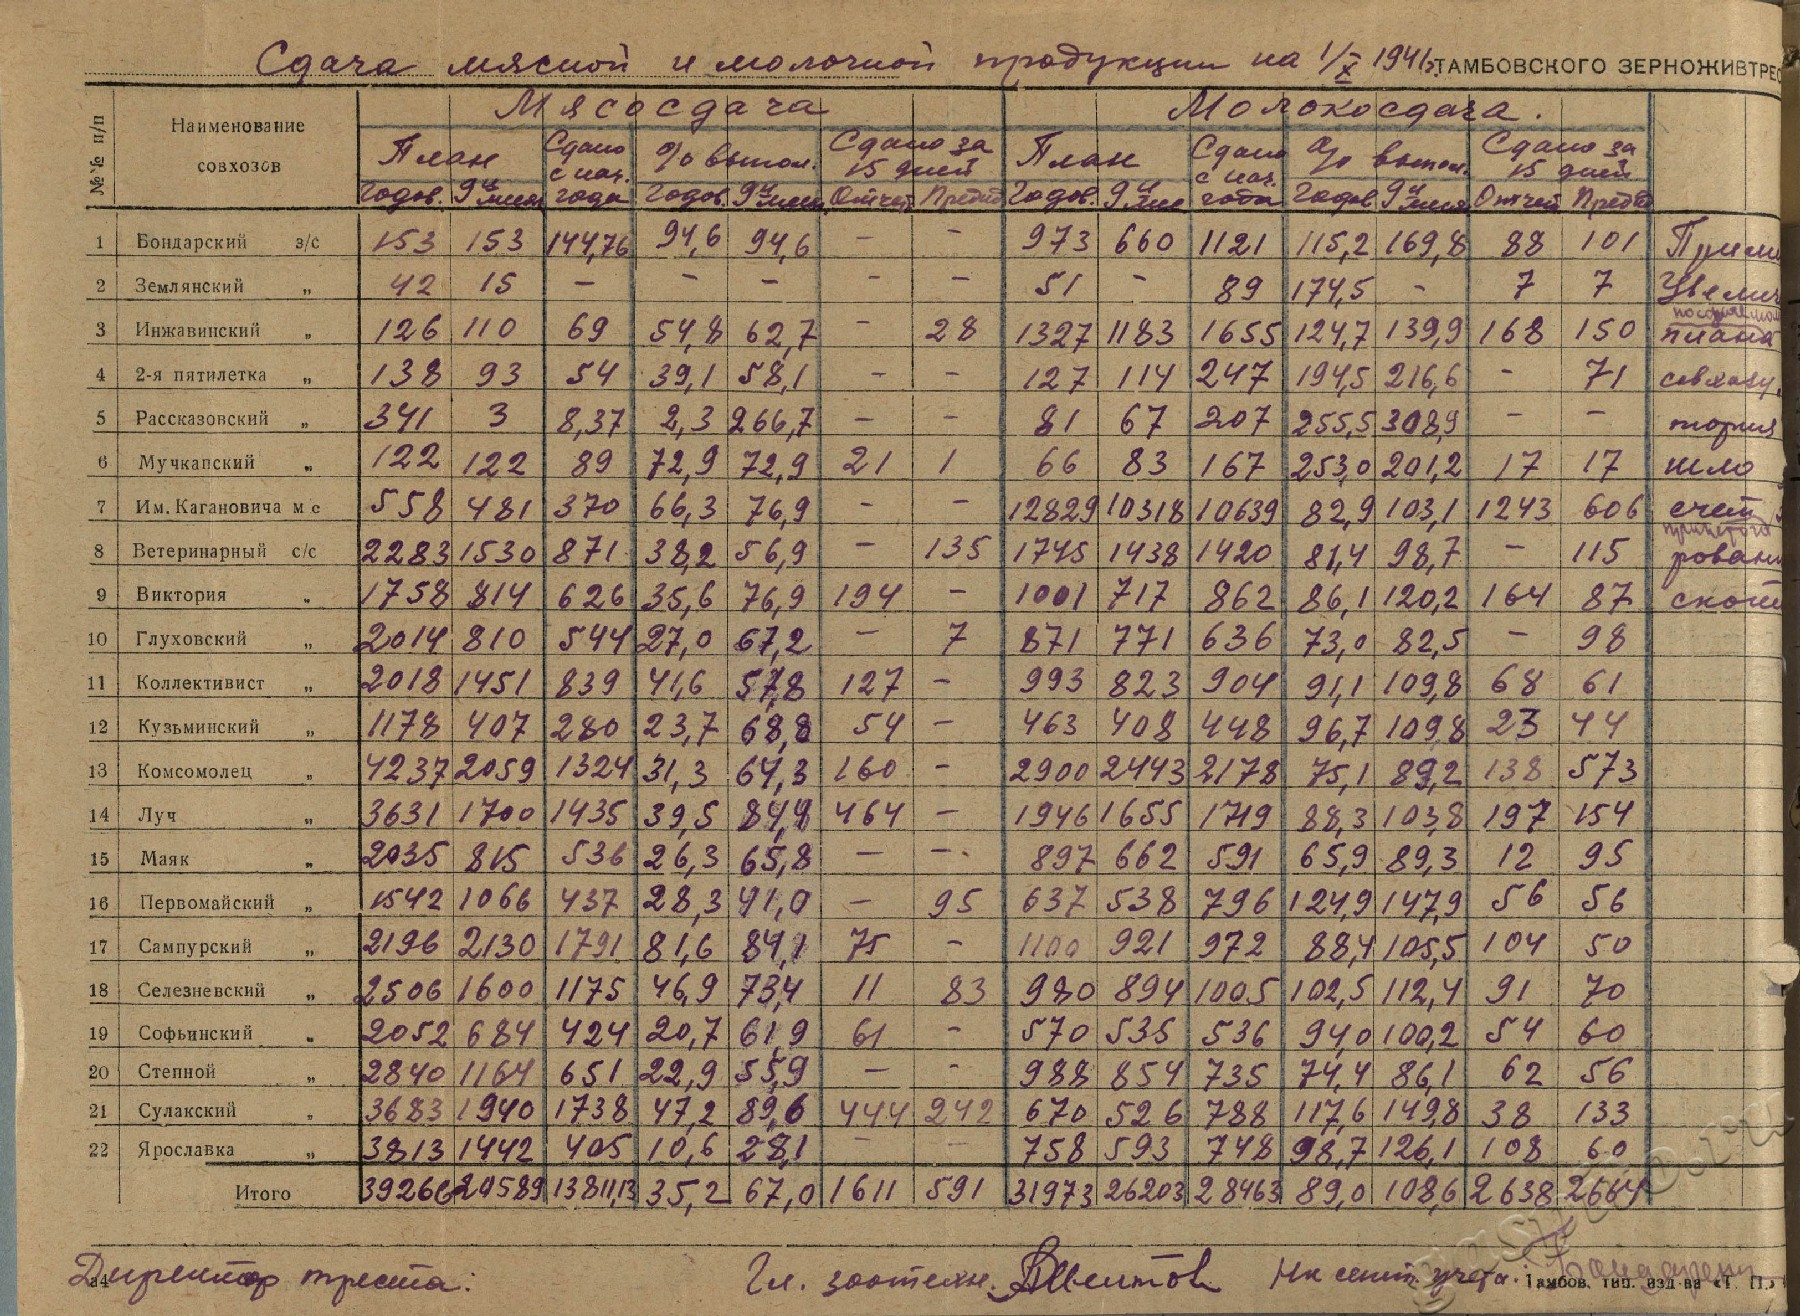 Сдача мясной и молочной продукции на 1/X 1941г. ТАМБОВСКОГО ЗЕРНОЖИВТРЕС
№№ п/п Наименование совхозов Мясосдача Молокосдача.
План Сдано с нач. года % выпол. Сдано за 15 дней План Сдано с нач. года % выпол. Сдано за 15 дней
годов. 9и мес годов. 9и мес Отчет Пред годов. 9и мес годов 9и мес Отчет Пред
1 Бондарский з/с 153 153 144,76 94,6 94,6 – – 973 660 1121 115,2 169,8 88 101
2 Землянский „ 42 15 – – – – – 51 – 89 174,5 – 7 7 Увелич
3 Инжавинский „ 126 110 69 54,8 62,7 – 28 1327 1183 1655 124,7 139,9 168 150 плана
4 2-я пятилетка „ 138 93 54 39,1 58,1 – – 127 114 247 194,5 216,6 – 71 совхозу
5 Рассказовский „ 341 3 8,37 2,3 266,7 – – 81 67 207 255,5 308,9 – –
6 Мучкапский „ 122 122 89 72,9 72,9 21 1 66 83 167 253,0 201,2 17 17 шло
7 Им. Кагановича м с 558 481 370 66,3 76,9 – – 12829 10318 10639 82,9 103,1 1243 606 счет
8 Ветеринарный с/с 2283 1530 871 38,2 56,9 – 135 1745 1438 1420 81,4 98,7 – 115 рован
9 Виктория „ 1758 814 626 35,6 76,9 194 – 1001 717 862 86,1 120,2 164 87 ского
10 Глуховский „ 2014 810 544 27,0 67,2 – 7 871 771 636 73,0 82,5 – 98
11 Коллективист „ 2018 1451 839 41,6 57,8 127 – 993 823 904 91,1 109,8 68 61
12 Кузьминский „ 1178 407 280 23,7 68,8 54 – 463 408 448 96,7 109,8 23 44
13 Комсомолец „ 4237 2059 1324 31,3 64,3 160 – 2900 2443 2178 75,1 89,2 138 573
14 Луч „ 3631 1700 1435 39,5 84,4 464 – 1946 1655 1719 88,3 103,8 197 154
15 Маяк „ 2035 815 536 26,3 65,8 – – 897 662 591 65,9 89,3 12 95
16 Первомайский „ 1542 1066 437 28,3 41,0 – 95 637 538 796 124,9 147,9 56 56
17 Сампурский „ 2196 2130 1791 81,6 84,1 75 – 1100 921 972 88,4 105,5 104 50
18 Селезневский „ 2506 1600 1175 46,9 73,4 11 83 980 894 1005 102,5 112,4 91 70
19 Софьинский „ 2052 684 424 20,7 61,9 61 – 570 535 536 94,0 100,2 54 60
20 Степной „ 2840 1164 651 22,9 55,9 – – 988 854 735 74,4 86,1 62 56
21 Сулакский „ 3683 1940 1738 47,2 89,6 444 242 670 526 788 117,6 149,8 38 133
22 Ярославка „ 3813 1442 405 10,6 28,1 – – 758 593 748 98,7 126,1 108 60
Итого 39266 20589 13811,13 35,2 67,0 1611 591 31973 26203 28463 89,0 108,6 2638 2664
Директор треста: Гл. зоотехн. Нк сект. учета: Тамбов. тип. изд-ва «Т. П.»